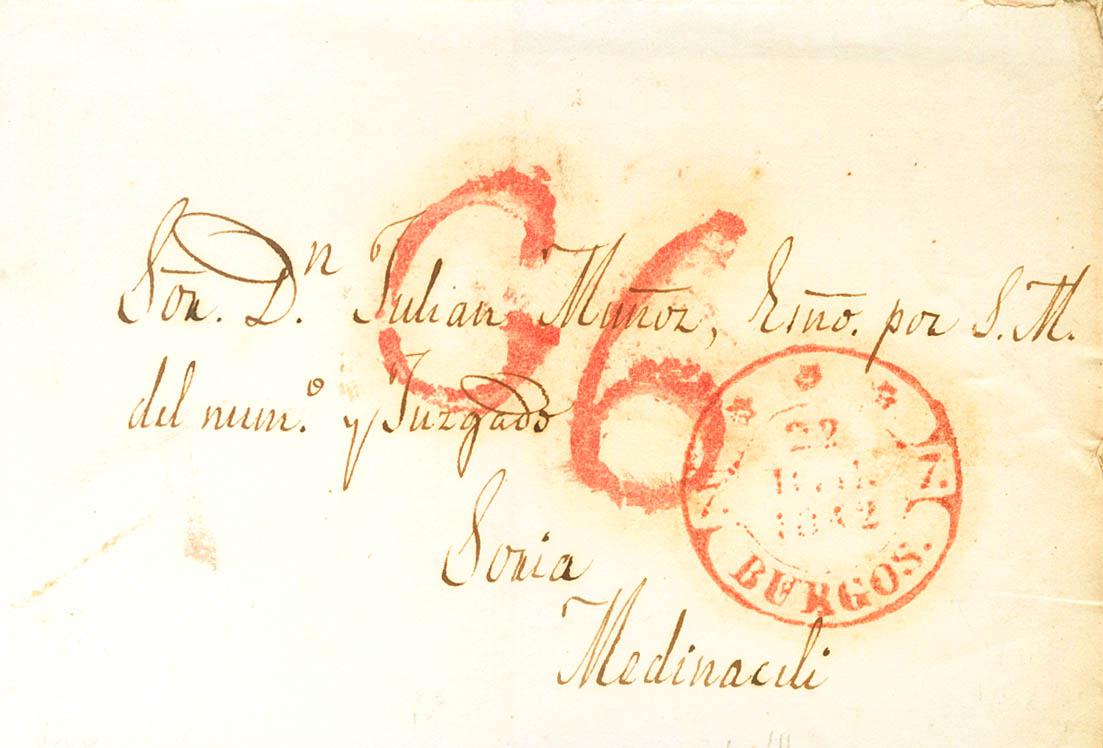 Sōr. D.ⁿ Julian Muñoz, Esno. por S.M.
del num.º y Juzgado
Soria
Medinaceli
G6
22
1842
BURGOS.